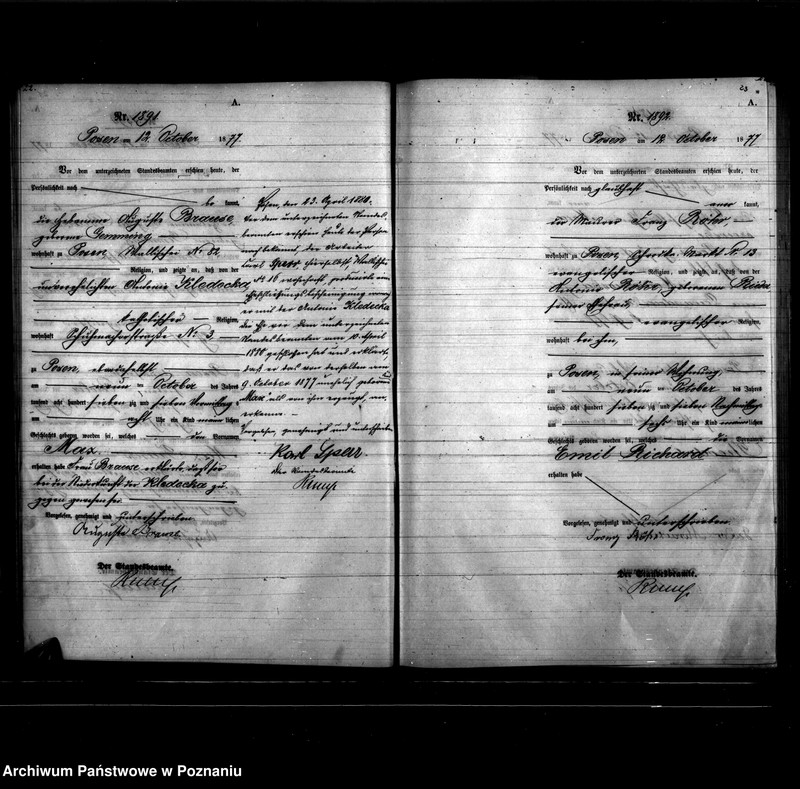 A.
Nr. 1891
Posen am 12 October 1877.
Vor dem unterzeichneten Standesbeamten erschien heute, der
Persönlichkeit nach
be kannt,
die Hebamme Auguste Brause,
geborne Gemming
wohnhaft zu Posen, Wallischei Nr 82
Religion, und zeigte an, daß von der
unverehelichten Antonie Kledecka,
katholischer Religion,
wohnhaft Schuhmacherstraße N. 3
zu Posen, ebendaselbst
am neun ten October des Jahres
tausend acht hundert sieben zig und sieben Vormittags
um acht Uhr ein Kind männ lichen
Geschlechts geboren worden sei, welches den Vornamen
Max
erhalten habe Frau Brause erklärte, daß sie
bei der Niederkunft der Kledecka zu-
gegen gewesen sei
Vorgelesen, genehmigt und unterschrieben
Auguste Brause
Der Standesbeamte.
Posen, den 23. April 1880.
Vor dem unterzeichneten Standes-
beamten erschien heute der Person
nach bekannt, der Arbeiter
Carl Sperr
er mit der Antonie Kledecka
die Ehe vor dem unterzeichneten
Standesbeamten am 10 April
1880 geschlossen hat und erklärte,
daß er das von derselben am
9. October 1877 unehelich geborene
Max als von ihm erzeugt, an-
erkenne.
Vorgelesen, genehmigt und unterschrieben
Karl Sperr.
Der Standesbeamte
A.
Nr. 1892
Posen am 12 October 1877
Vor dem unterzeichneten Standesbeamten erschien heute, der
Persönlichkeit nach glaubhaft
aner kannt,
der Maurer Franz
wohnhaft zu Posen, Markt N. 13
evangelischer Religion, und zeigte an, daß von der
Antonie geborenen
seiner Ehefrau,
evangelischer Religion,
wohnhaft bei ihm,
zu Posen, in seiner Wohnung
am neun ten October des Jahres
tausend acht hundert sieben zig und sieben Nachmittags
um sechs Uhr ein Kind männ lichen
Geschlechts geboren worden sei, welches die Vornamen
Emil Richard
erhalten habe
Vorgelesen, genehmigt und unterschrieben.
Franz
Der Standesbeamte.
Archiwum Państwowe w Poznaniu